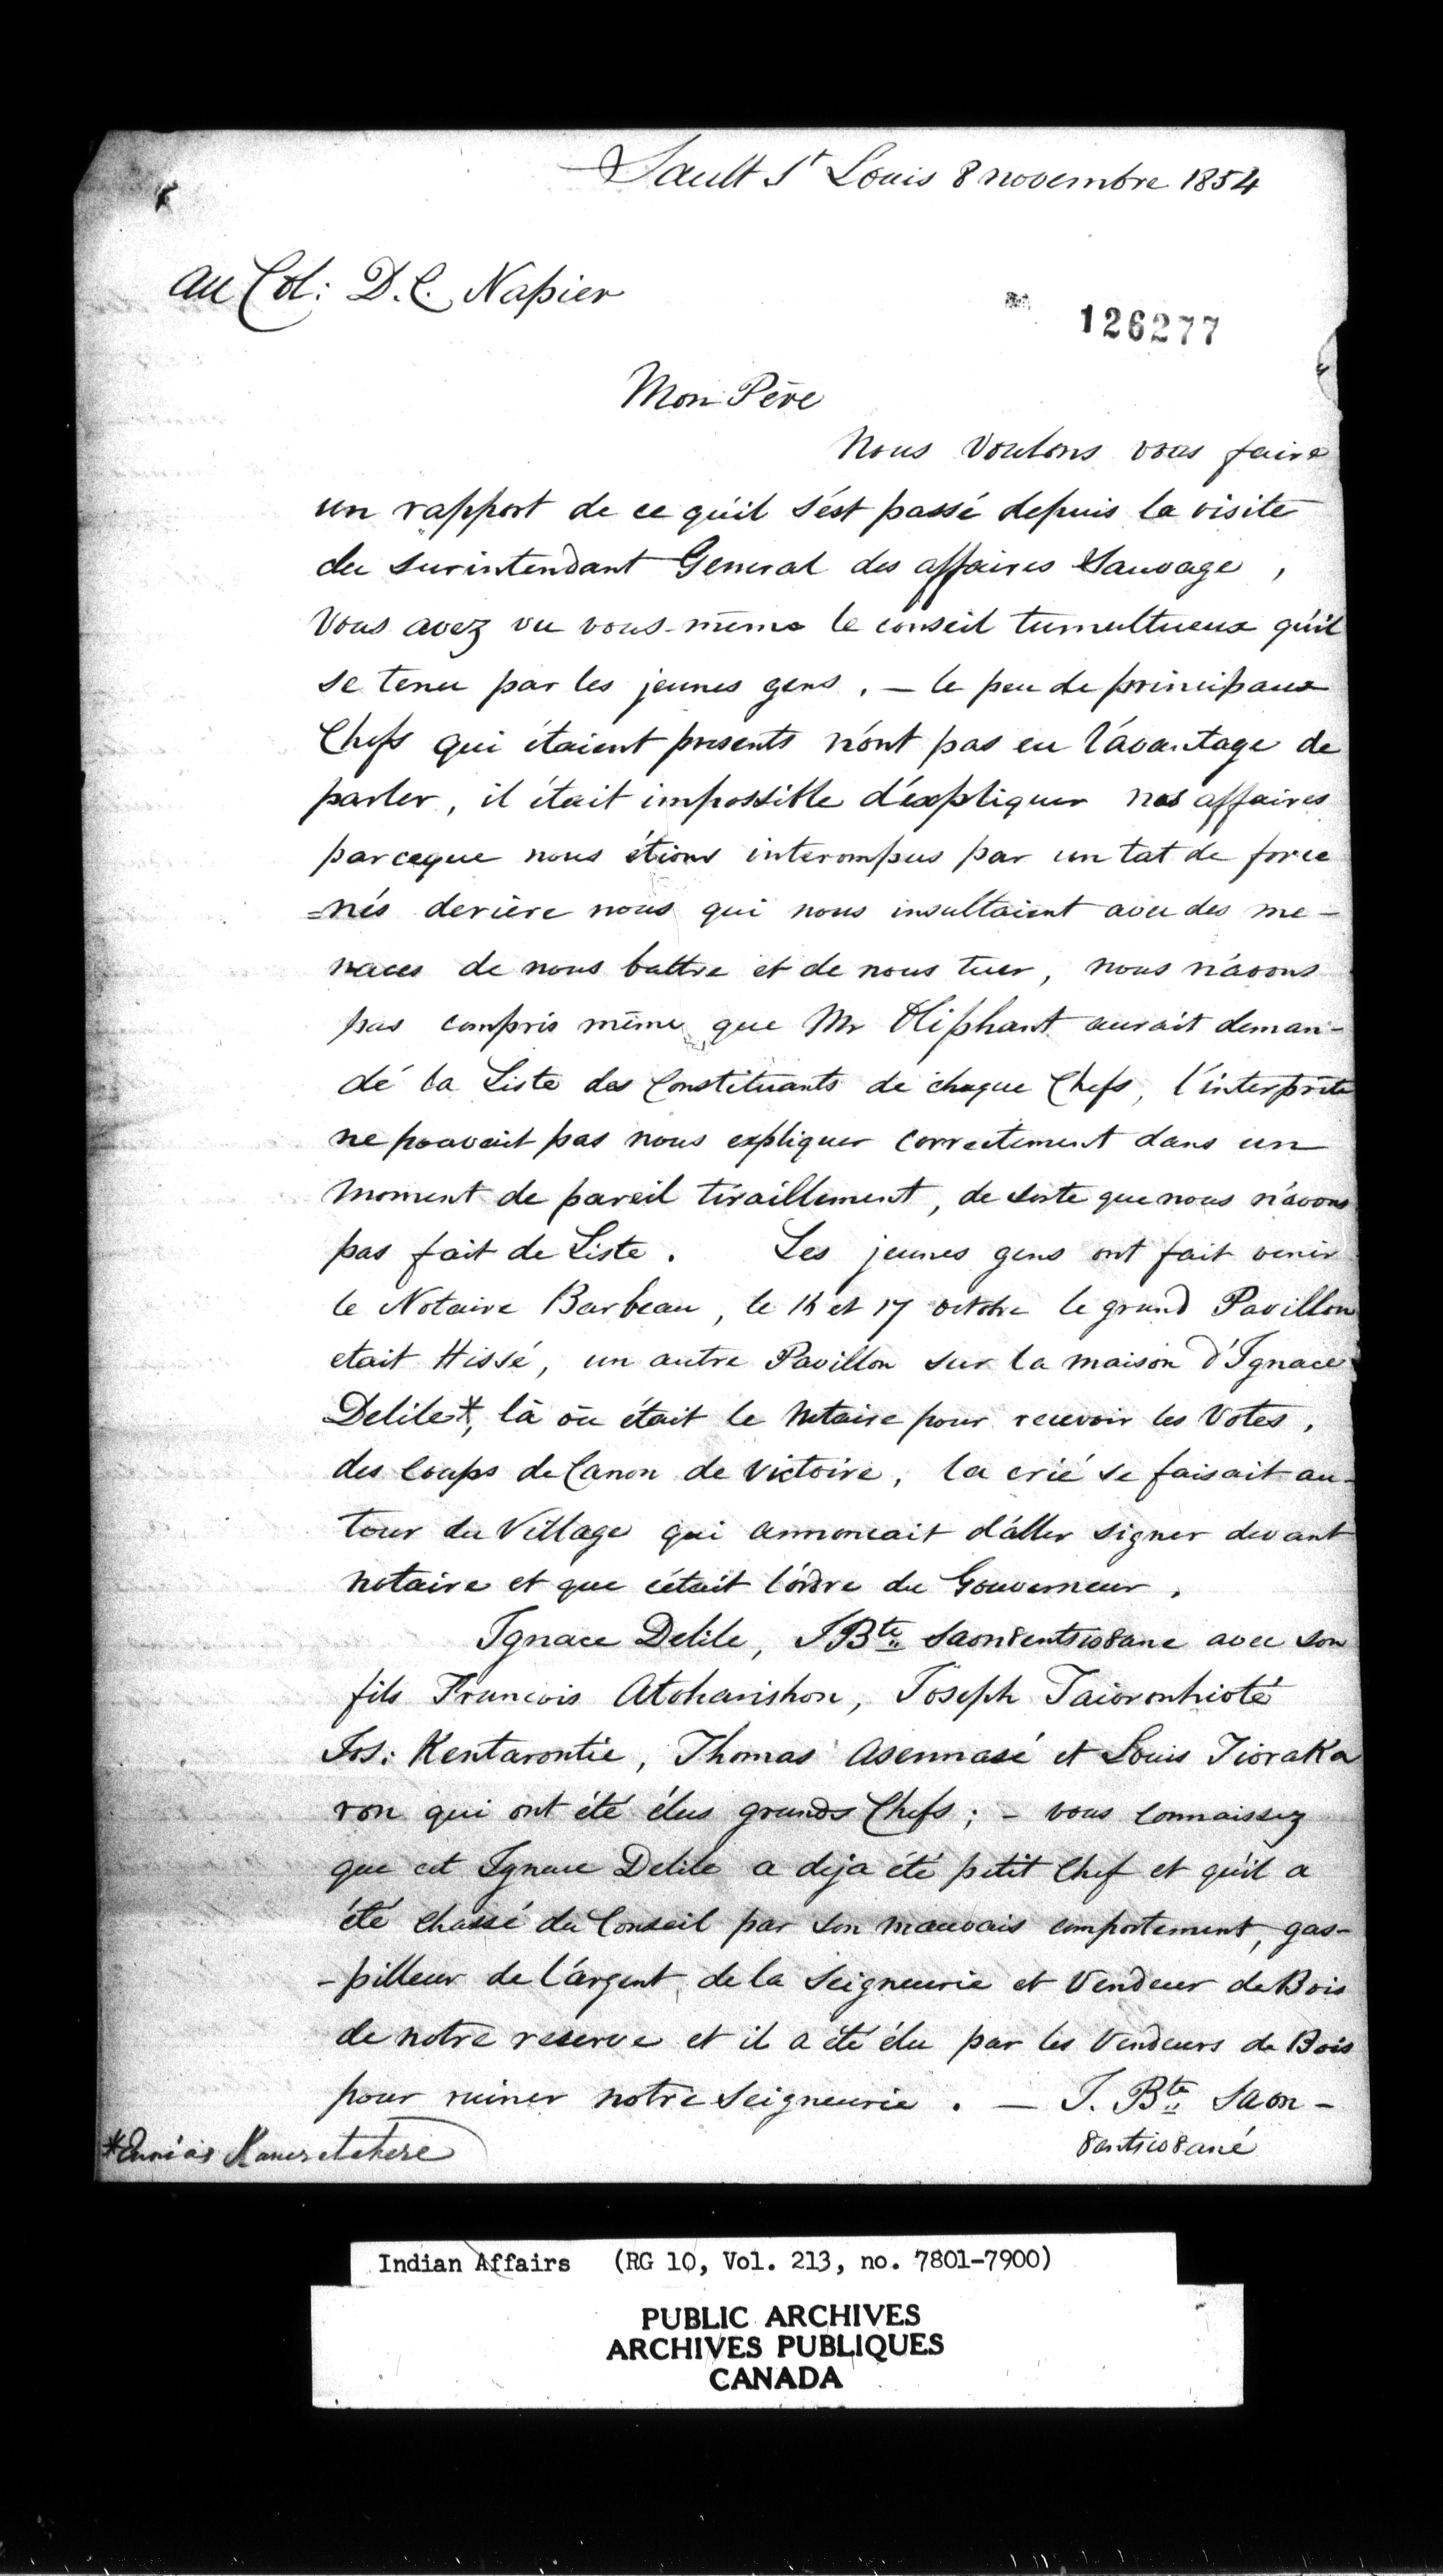 Sault St Louis 8 novembre 1854
au Col: D.C. Napier
126277
Mon Père
Nous voulons vous faire
un rapport de ce qu'il s'est passé depuis la visite
du surintendant General des affaires Sauvage,
Vous avez vu vous-même le conseil tumultueux qu'il
se tenu par les jeunes gens. — le peu de principaux
Chefs qui étaient presents n'ont pas eu l'avantage de
parler, il était impossible d'expliquer nos affaires
parceque nous étions interompus par un tat de force
=nés derière nous qui nous insultaient avec des me-
naces de nous battre et de nous tuer, nous n'avons
pas compris même que Mr Oliphant aurait deman-
dé la Liste des Constituants de chaque Chefs, l'interprète
ne pouvait pas nous expliquer correctement dans un
moment de pareil tiraillement, de sorte que nous n'avons
pas fait de Liste. Les jeunes gens ont fait venir
le Notaire Barbeau, le 16 et 17 octobre le grand Pavillon
etait Hissé, un autre Pavillon sur la maison d'Ignace
Delile*, là où était le Notaire pour recevoir les Votes,
des Coups de Canon de Victoire, la crié se faisait au-
tour du Village qui annoncait d'aller signer devant
notaire et que c'était l'ordre du Gouverneur.
Ignace Delile, J Bte Saon8entsio8ane avec son
fils Francois Atoharishon, Joseph Taioronhioté
Jos: Kentarontie, Thomas Asennasé et Louis Tioraka
ron qui ont été élus grands Chefs; - vous Connaissez
que cet Ignace Delile a deja été petit Chef et qu'il a
été Chassé du Conseil par son mauvais comportement, gas-
-pilleur de l'argent de la Seigneurie et Vendeur de Bois
de notre reserve et il a été élu par les Vendeurs de Bois
pour ruiner notre Seigneurie. — J. Bte Saon-
8entsio8ané
Indian Affairs (RG 10, Vol. 213, no. 7801-7900)
PUBLIC ARCHIVES
ARCHIVES PUBLIQUES
CANADA